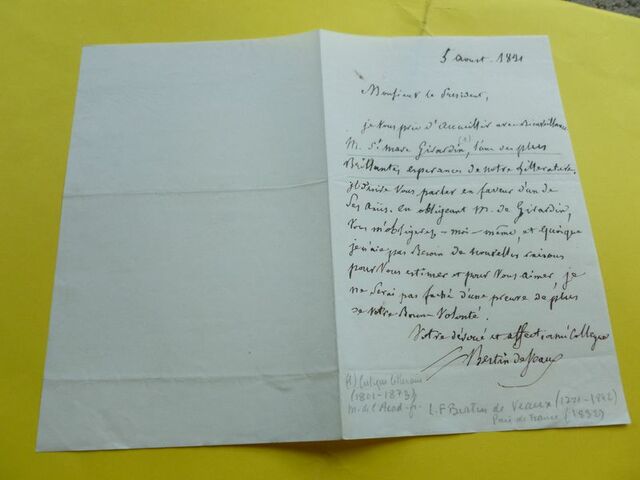 5 aoust. 1831
Monsieur le President,
je vous prie d'accueillir avec bienveillance
M. St marc Girardin, (1) l'un des plus
Brillantes esperances de notre litterature.
il desire vous parler en faveur d'un de
ses amis. en obligeant M. de Girardin,
vous m'obligerez - moi - même, et quoique
je n'aie pas Besoin de nouvelles raisons
pour vous estimer et pour vous aimer, je
ne serai pas faché d'une preuve de plus
de votre Bonne volonté.
Votre dévoué et affectionné Collegue
Bertin deVeaux
(1) Critique littéraire
(1801-1873)
m. de l'Acad. fr.
L.F Bertin de Veaux (1771-1842)
Pair de France (1832)